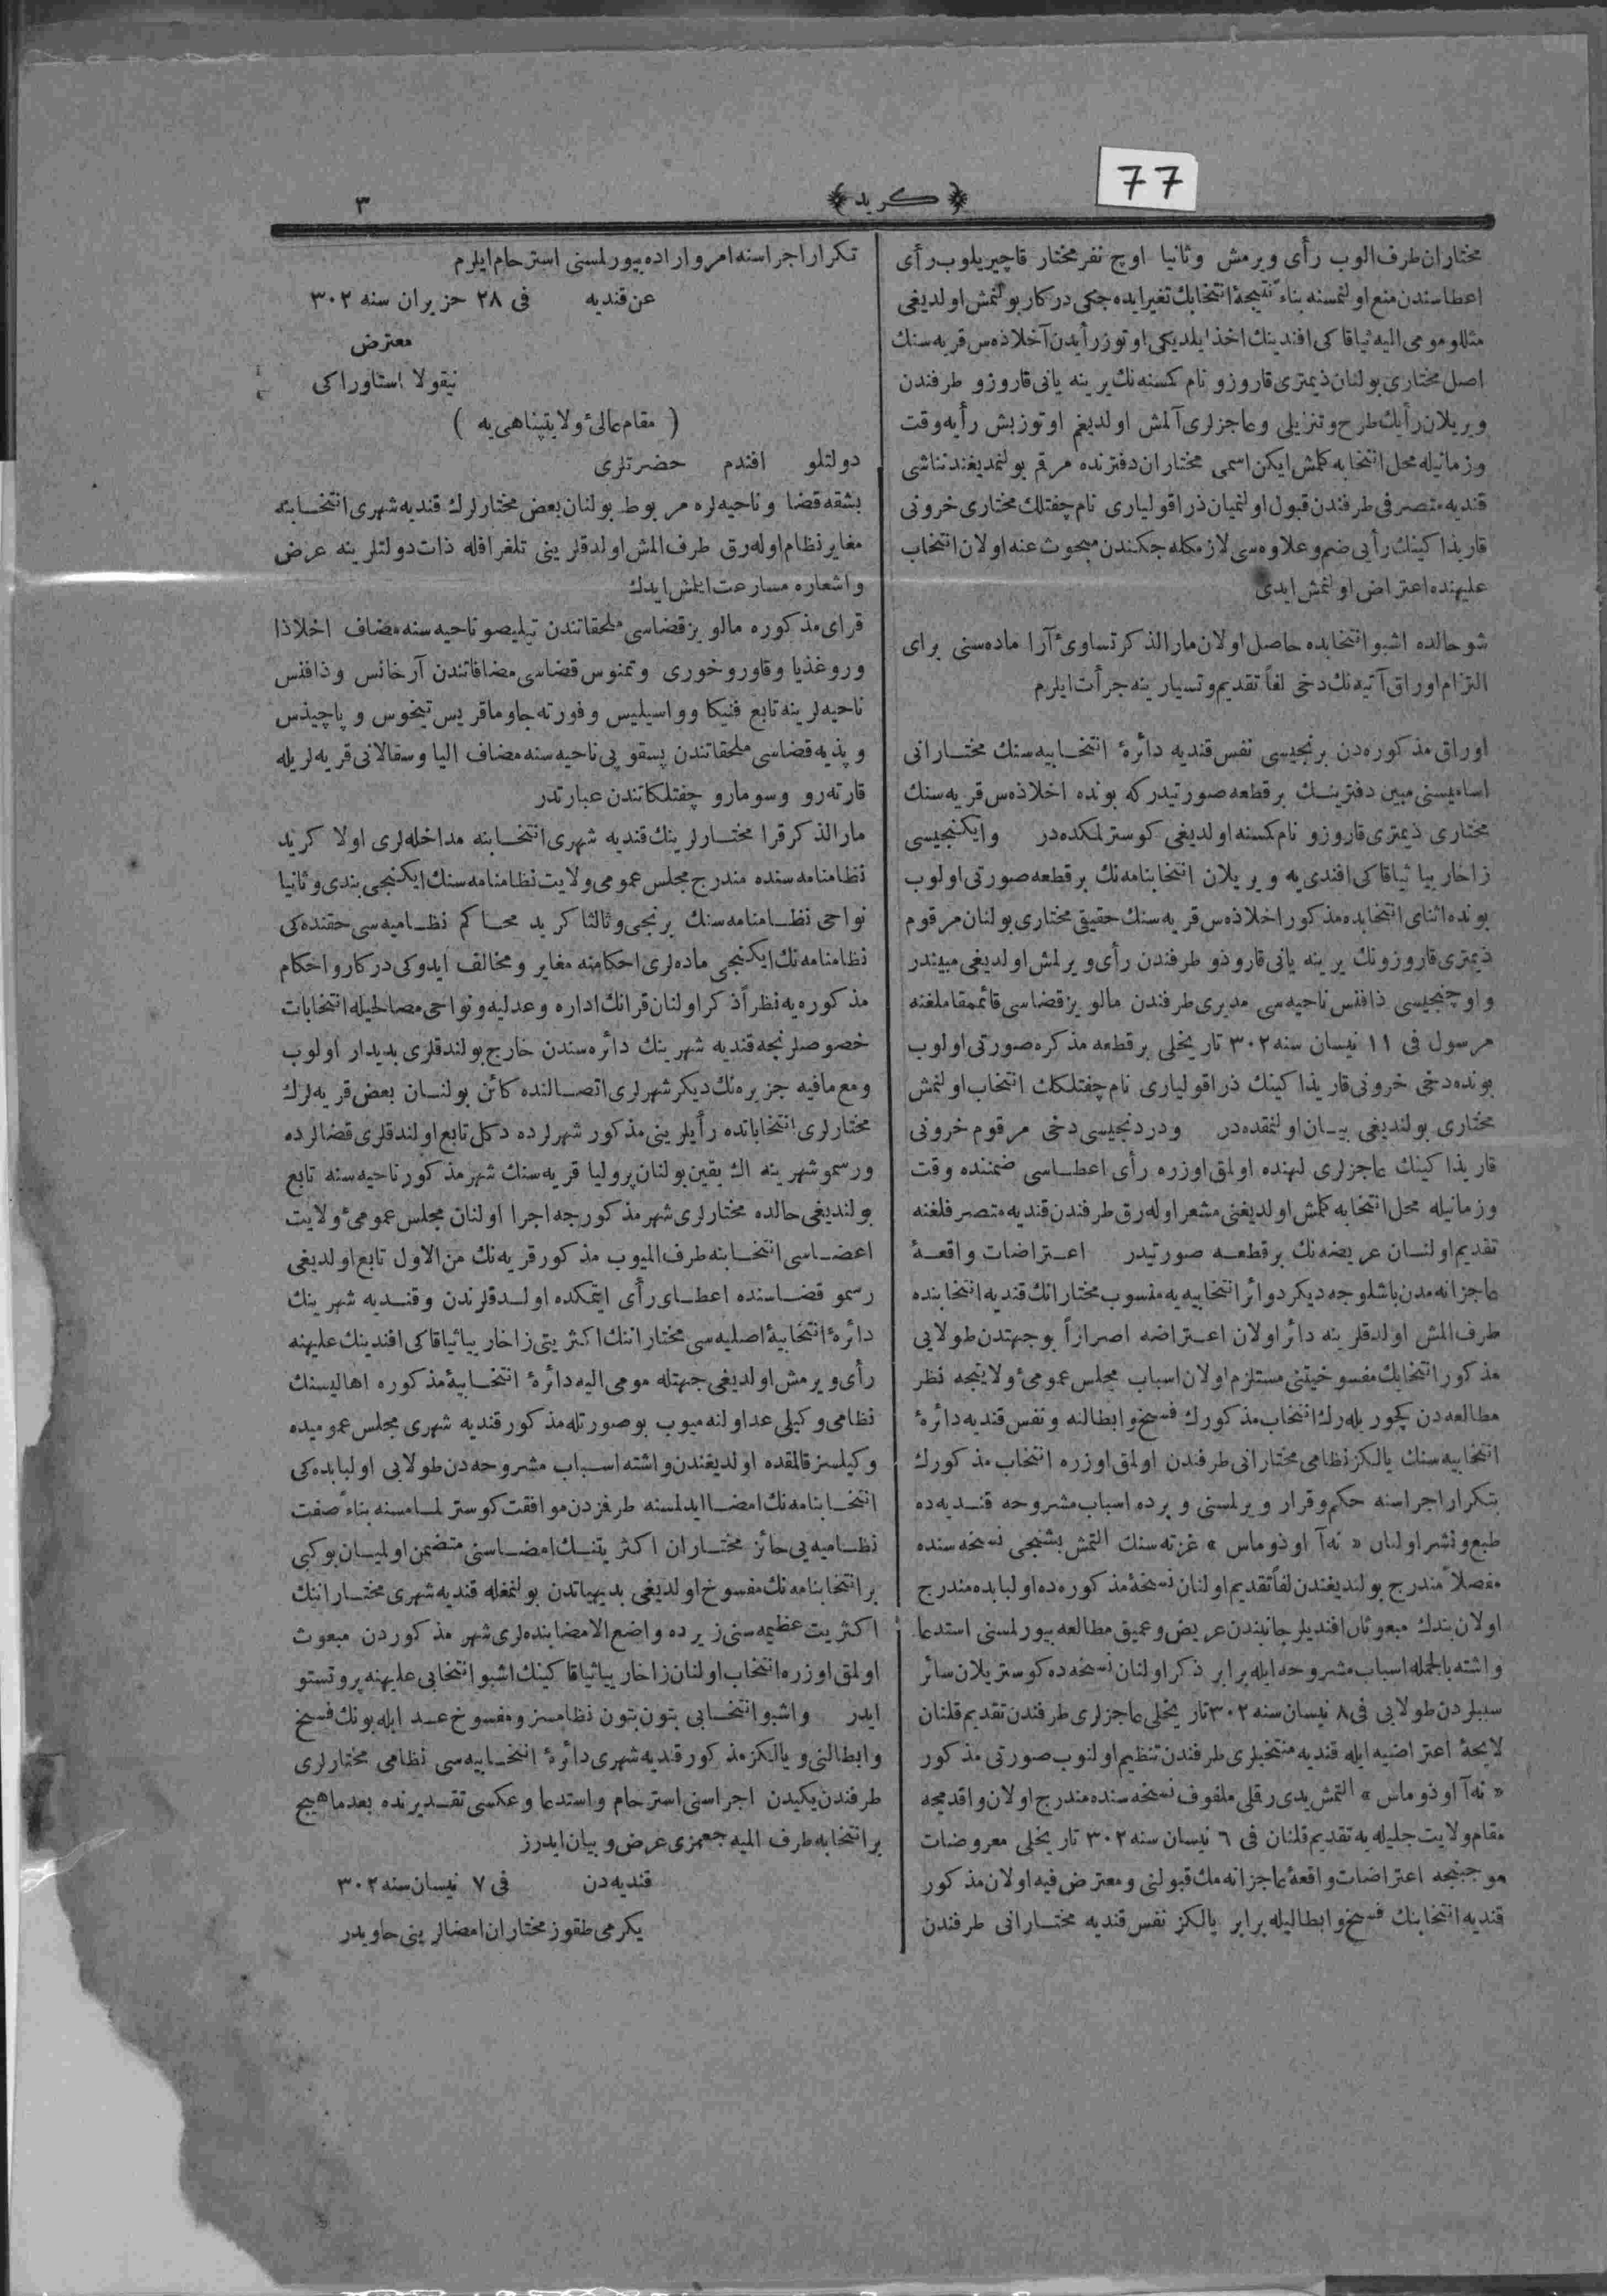 77
﴿ كريد ﴾
٣
مختاران طرف الوب رأى ويرمش وثانيا اوچ نفر مختار قاچيريلوب رأى
اعطاسندن منع اولنمسنه بناءً نتيجۀ انتخابك تغير ايده جكى دركار بولنمش اولديغى
مثللو مومى اليه ثياقاكى افندينك اخذ ايلديكى اوتوز رأيدن آخلاذه س قريه سنك
اصل مختارى بولنان ذيمترى قاروزو نام كسنه نك يرينه يانى قاروزو طرفندن
ويريلان رأيك طرح وتنزيلى وعاجزلرى آلمش اولديغم اوتوز بش رأيه وقت
وزمانيله محل انتخابه كلمش ايكن اسمى مختاران دفترنده مرقم بولنمديغندن ناشى
قنديه متصرفى طرفندن قبول اولنميان ذراقوليارى نام چفتلك مختارى خرونى
قاريذاكينك رأيى ضم وعلاوه سى لازمكله جكندن مبحوث عنه اولان انتخاب
عليهنده اعتراض اولنمش ايدى
شو حالده اشبو انتخابده حاصل اولان مار الذكر تساوئ آرا ماده سنى براى
التزام اوراق آتيه نك دخى لفاً تقديم وتسيارينه جرأت ايلرم
اوراق مذكوره دن برنجيسى نفس قنديه دائرۀ انتخابيه سنك مختارانى
اساميسنى مبين دفترينك بر قطعه صورتيدر كه بونده اخلاذه س قريه سنك
مختارى ذيمترى قاروزو نام كسنه اولديغى كوسترلمكده در وايكنجيسى
زاخاريا ثياقاكى افندى يه ويريلان انتخابنامه نك بر قطعه صورتى اولوب
بونده اثناى انتخابده مذكور اخلاذه س قريه سنك حقيقى مختارى بولنان مرقوم
ذيمترى قاروزونك يرينه يانى قاروذو طرفندن رأى ويرلمش اولديغى مبيندر
واوچنجيسى ذافنس ناحيه سى مديرى طرفندن مالويز قضاسى قائممقاملغنه
مرسول فى ١١ نيسان سنه ٣٠٢ تاريخلى بر قطعه مذكره صورتى اولوب
بونده دخى خرونى قاريذاكينك ذراقوليارى نام چفتلكك انتخاب اولنمش
مختارى بولنديغى بيان اولنمقده در ودردنجيسى دخى مرقوم خرونى
قاريذاكينك عاجزلرى لهنده اولمق اوزره رأى اعطاسى ضمننده وقت
وزمانيله محل انتخابه كلمش اولديغنى مشعر اوله رق طرفندن قنديه متصرفلغنه
تقديم اولنان عريضه نك بر قطعه صورتيدر اعتراضات واقعۀ
عاجزانه مدن باشلوجه ديكر دوائر انتخابيه يه منسوب مختارانك قنديه انتخابنده
طرف المش اولدقلرينه دائر اولان اعتراضه اصراراً بوجهتدن طولايى
مذكور انتخابك مفسوخيتنى مستلزم اولان اسباب مجلس عمومئ ولايتجه نظر
مطالعه دن كچوريله رك انتخاب مذكورك فسخ وابطالنه ونفس قنديه دائرۀ
انتخابيه سنك يالكز نظامى مختارانى طرفندن اولمق اوزره انتخاب مذكورك
بتكرار اجراسنه حكم وقرار ويرلسنى وبرده اسباب مشروحه قنديه ده
طبع ونشر اولنان « نه آ اوذوماس » غزته سنك التمش بشنجى نسخه سنده
مفصلاً مندرج بولنديغندن لفاً تقديم اولنان نسخۀ مذكوره ده اولبابده مندرج
اولان بندك مبعوثان افنديلر جانبندن عريض وعميق مطالعه بيورلمسنى استدعا
واشته بالجمله اسباب مشروحه ايله برابر ذكر اولنان نسخه ده كوستريلان سائر
سببلردن طولايى فى ٨ نيسان سنه ٣٠٢ تاريخلى عاجزلرى طرفندن تقديم قلنان
لايحۀ اعتراضيه ايله قنديه منتخبلرى طرفندن تنظيم اولنوب صورتى مذكور
« نه آ اوذوماس » التمش يدى رقملى ملفوف نسخه سنده مندرج اولان واقدمجه
مقام ولايت جليله يه تقديم قلنان فى ٦ نيسان سنه ٣٠٢ تاريخلى معروضات
موجبنجه اعتراضات واقعۀ عاجزانه مك قبولنى ومعترض فيه اولان مذكور
قنديه انتخابنك فسخ وابطاليله برابر يالكز نفس قنديه مختارانى طرفندن
تكرار اجراسنه امر واراده بيورلمسنى استرحام ايلرم
عن قنديه فى ٢٨ حزيران سنه ٣٠٢
معترض
نيقولا استاوراكى
( مقام عالئ ولايتپناهى يه )
دولتلو افندم حضرتلرى
بشقه قضا وناحيه لره مربوط بولنان بعض مختارلرك قنديه شهرى انتخابنه
مغاير نظام اوله رق طرف المش اولدقلرينى تلغرافله ذات دولتلرينه عرض
واشعاره مسارعت ايلمش ايدك
قراى مذكوره مالويز قضاسى ملحقاتندن تيليصو ناحيه سنه مضاف اخلاذا
وروغذيا وقاوروخورى وتمنوس قضاسى مضافاتندن آرخانس وذافنس
ناحيه لرينه تابع فنيكا وواسيليس وفورته جا وماقريس تيخوس وپاچيذس
وپذيه قضاسى ملحقاتندن پسقوپى ناحيه سنه مضاف اليا وسقالانى قريه لريله
قارته رو وسومارو چفتلكاتندن عبارتدر
مار الذكر قرا مختارلرينك قنديه شهرى انتخابنه مداخله لرى اولا كريد
نظامنامه سنده مندرج مجلس عمومى ولايت نظامنامه سنك ايكنجى بندى وثانيا
نواحى نظامنامه سنك برنجى وثالثا كريد محاكم نظاميه سى حقنده كى
نظامنامه نك ايكنجى ماده لرى احكامنه مغاير ومخالف ايدوكى دركار واحكام
مذكوره يه نظراً ذكر اولنان قرانك اداره وعدليه ونواحى مصالحيله انتخابات
خصوصلرنجه قنديه شهرينك دائره سندن خارج بولندقلرى بديدار اولوب
ومع مافيه جزيره نك ديكر شهرلرى اتصالنده كائن بولنان بعض قريه لرك
مختارلرى انتخاباتده رأيلرينى مذكور شهرلرده دكل تابع اولندقلرى قضالرده
ورسمو شهرينه اك يقين بولنان پروليا قريه سنك شهر مذكور ناحيه سنه تابع
بولنديغى حالده مختارلرى شهر مذكورجه اجرا اولنان مجلس عمومئ ولايت
اعضاسى انتخابنه طرف الميوب مذكور قريه نك من الاول تابع اولديغى
رسمو قضاسنده اعطاى رأى ايتمكده اولدقلرندن وقنديه شهرينك
دائرۀ انتخابيۀ اصليه سى مختاراننك اكثريتى زاخاريا ثياقاكى افندينك عليهنه
رأى ويرمش اولديغى جهتله مومى اليه دائرۀ انتخابيۀ مذكوره اهاليسنك
نظامى وكيلى عد اولنه ميوب بوصورتله مذكور قنديه شهرى مجلس عموميده
وكيلسز قالمقده اولديغندن واشته اسباب مشروحه دن طولايى اولبابده كى
انتخابنامه نك امضا ايدلمسنه طرفزدن موافقت كوسترلمامسنه بناءً صفت
نظاميه يى حائز مختاران اكثريتنك امضاسنى متضمن اولميان بوكبى
بر انتخابنامه نك مفسوخ اولديغى بديهياتدن بولنمغله قنديه شهرى مختارانينك
اكثريت عظيمه سنى زيرده واضع الامضا بنده لرى شهر مذكوردن مبعوث
اولمق اوزره انتخاب اولنان زاخاريا ثياقاكينك اشبو انتخابى عليهنه پروتستو
ايدر واشبو انتخابى بتون بتون نظامسز ومفسوخ عد ايله بونك فسخ
وابطالنى ويالكز مذكور قنديه شهرى دائرۀ انتخابيه سى نظامى مختارلرى
طرفندن يكيدن اجراسنى استرحام واستدعا وعكسى تقديرنده بعدما هيچ
بر انتخابه طرف الميه جغمزى عرض وبيان ايدرز
قنديه دن فى ٧ نيسان سنه ٣٠٢
يكرمى طقوز مختاران امضالرينى حاويدر